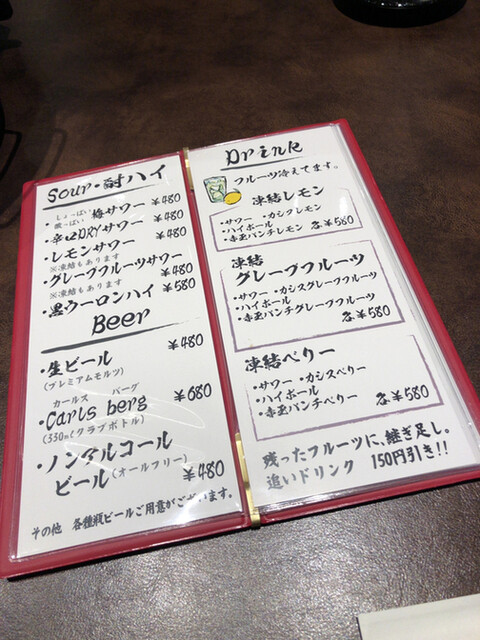 Sour・酎ハイ
しょっぱい
酸っぱい 梅サワー ¥480
・辛口DRYサワー ¥480
・レモンサワー ¥480
※凍結もあります
・グレープフルーツサワー ¥480
※凍結もあります
・黒ウーロンハイ ¥580
Beer
・生ビール ¥480
(プレミアムモルツ)
カールス バーグ
・Carls berg ¥680
(330mlクラブボトル)
・ノンアルコール
ビール(オールフリー) ¥480
その他 各種瓶ビールご用意がございます。
Drink
フルーツ冷えてます。
凍結レモン
・サワー ・カシスレモン
・ハイボール
・赤玉パンチレモン 各¥580
凍結
グレープフルーツ
・サワー ・カシスグレープフルーツ
・ハイボール
・赤玉パンチグレープフルーツ
各¥580
凍結ベリー
・サワー ・カシスベリー
・ハイボール
・赤玉パンチベリー 各¥580
残ったフルーツに、継ぎ足し。
追いドリンク 150円引き!!